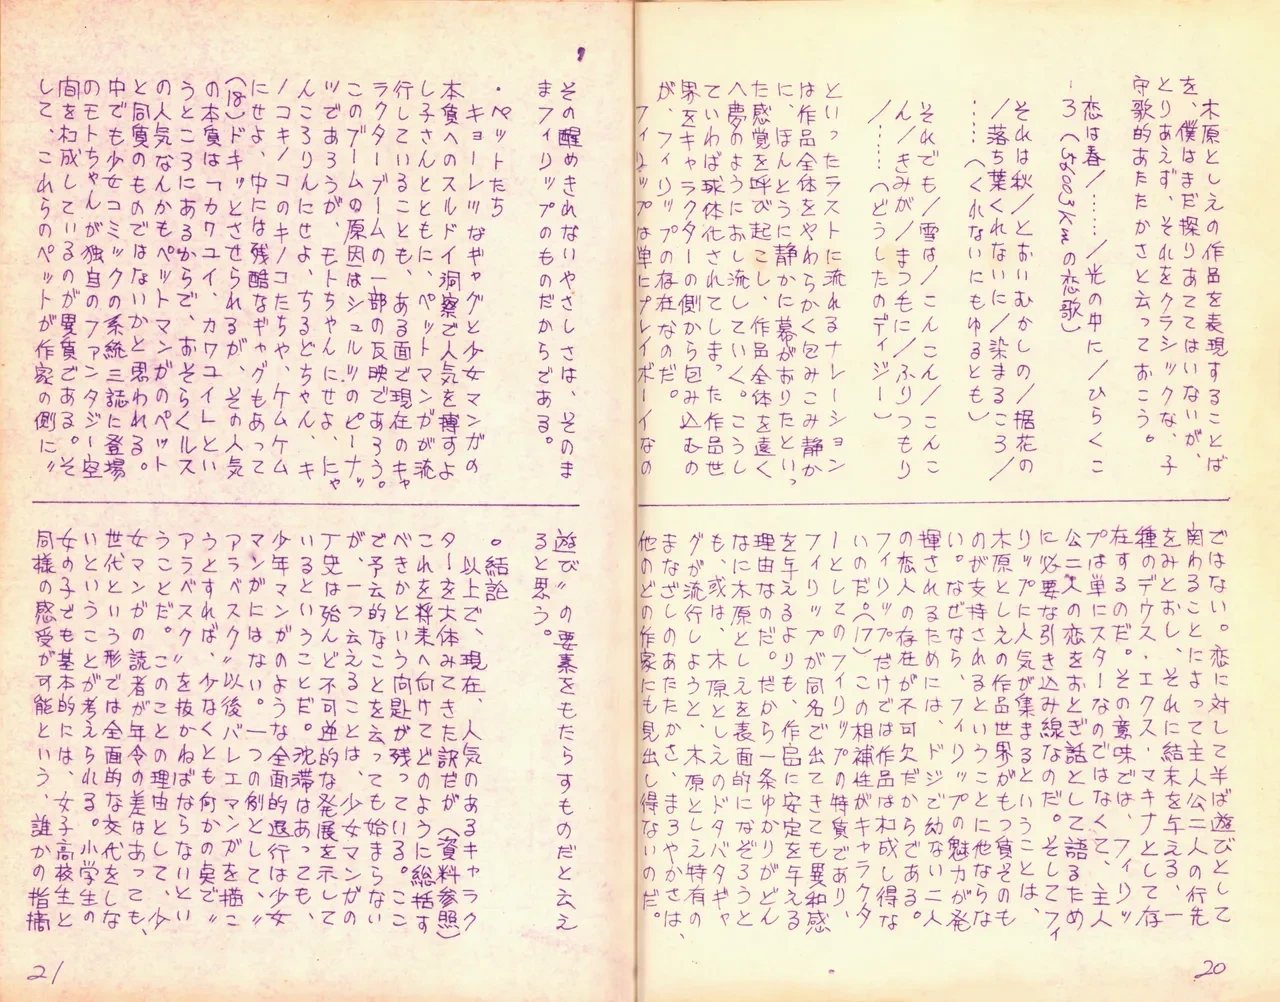 木原としえの作品を表現することば
を、僕はまだ探りあててはいないが、
とりあえず、それをクラシックな、子
守歌的あたたかさと云っておこう。
恋は春／……／光の中に／ひらくこ
ろ（56003Kmの恋歌）
それは秋／とおいむかしの／裾花の
／落ち葉くれないに／染まるころ／
……（くれないにもゆるとも）
それでも／雪は／こんこん／こんこ
ん／きみが／まつ毛に／ふりつもり
／……（どうしたのデイジー）
といったラストに流れるナレーション
は作品全体をやわらかく包みこみ静か
に、ほんとうに静かに幕がおりたといっ
た感覚を呼び起こし、作品全体を遠く
へ夢のようにおし流していく。こうし
ていわば球体化されてしまった作品世
界をキャラクターの側から包み込むの
が、フィリップの存在なのだ。
フィリップは単にプレイボーイなの
ではない。恋に対して半ば遊びとして
関わることによって主人公二人の行先
をみとおし、それに結末を与える、一
種のデウス・エクス・マキナとして存
在するのだ。その意味では、フィリッ
プは単にスターなのではなくて、主人
公二人の恋をおとぎ話として語るため
に必要な引き込み線なのだ。そしてフィ
リップに人気が集まるということは、
木原としえの作品世界がもつ質そのも
のが支持されるということに他ならな
い。なぜなら、フィリップの魅力が発
揮されるためには、ドジで幼ない二人
の恋人の存在が不可欠だからである。
フィリップだけでは作品は構成し得な
いのだ。（17）この相補性がキャラクタ
ーとしてのフィリップの特質であり、
フィリップが同名で出てきても異和感
を与えるよりも、作品に安定を与える
理由なのだ。だから一条ゆかりがどん
なに木原としえを表面的になぞろうと
も、或は、木原としえのドタバタギャ
グが流行しようと、木原としえ特有の
まなざしのあたたかさ、まろやかさは、
他のどの作家にも見出し得ないのだ。
20
その醒めきれないやさしさは、そのま
まフィリップのものだからである。
・ペットたち
キョーレツなギャグと少女マンガの
本質へのスルドイ洞察で人気を博すよ
し子さんとともに、ペットマンガが流
行していることも、ある面で現在のキャ
ラクターブームの一部の反映であろう。
このブームの原因はシュルツのピーナッ
ツであろうが、モトちゃんにせよ、にゃ
んころりんにせよ、ちるどちゃん、キ
ノコキノコのキノコたちや、ケムケム
にせよ、中には残酷なギャグもあって
（18）ドキッとさせられるが、その人気
の本質は「カワユイ、カワユイ」とい
うところにあるからで、おそらくルス
の人気なんかもペットマンガのペット
と同質のものではないかと思われる。
中でも少女コミックの系統三誌に登場
のモトちゃんが独自のファンタジー空
間を構成しているのが異質である。そ
して、これらのペットが作家の側に〃
遊び〃の要素をもたらすものだと云え
ると思う。
。結論
以上で、現在、人気のあるキャラク
ターを大体みてきた訳だが（資料参照）
これを将来へ向けてどのように総括す
べきかという問題が残っている。ここ
で予言的なことを云っても始まらない
が、一つ云えることは、少女マンガの
歴史は殆んど不可逆的な発展を示して
いるということだ。沈滞はあっても、
少年マンガのような全面的退行は少女
マンガにはない。一つの例として、〃
アラベスク〃以後バレエマンガを描こ
うとすれば、少なくとも何かの点で〃
アラベスク〃を抜かねばならないとい
うことだ。このことの理由として、少
女マンガの読者が年令の差はあっても、
世代という形では全面的な交代をしな
いということが考えられる。小学生の
女の子でも基本的には、女子高校生と
同様の感受が可能という、誰かの指摘
21